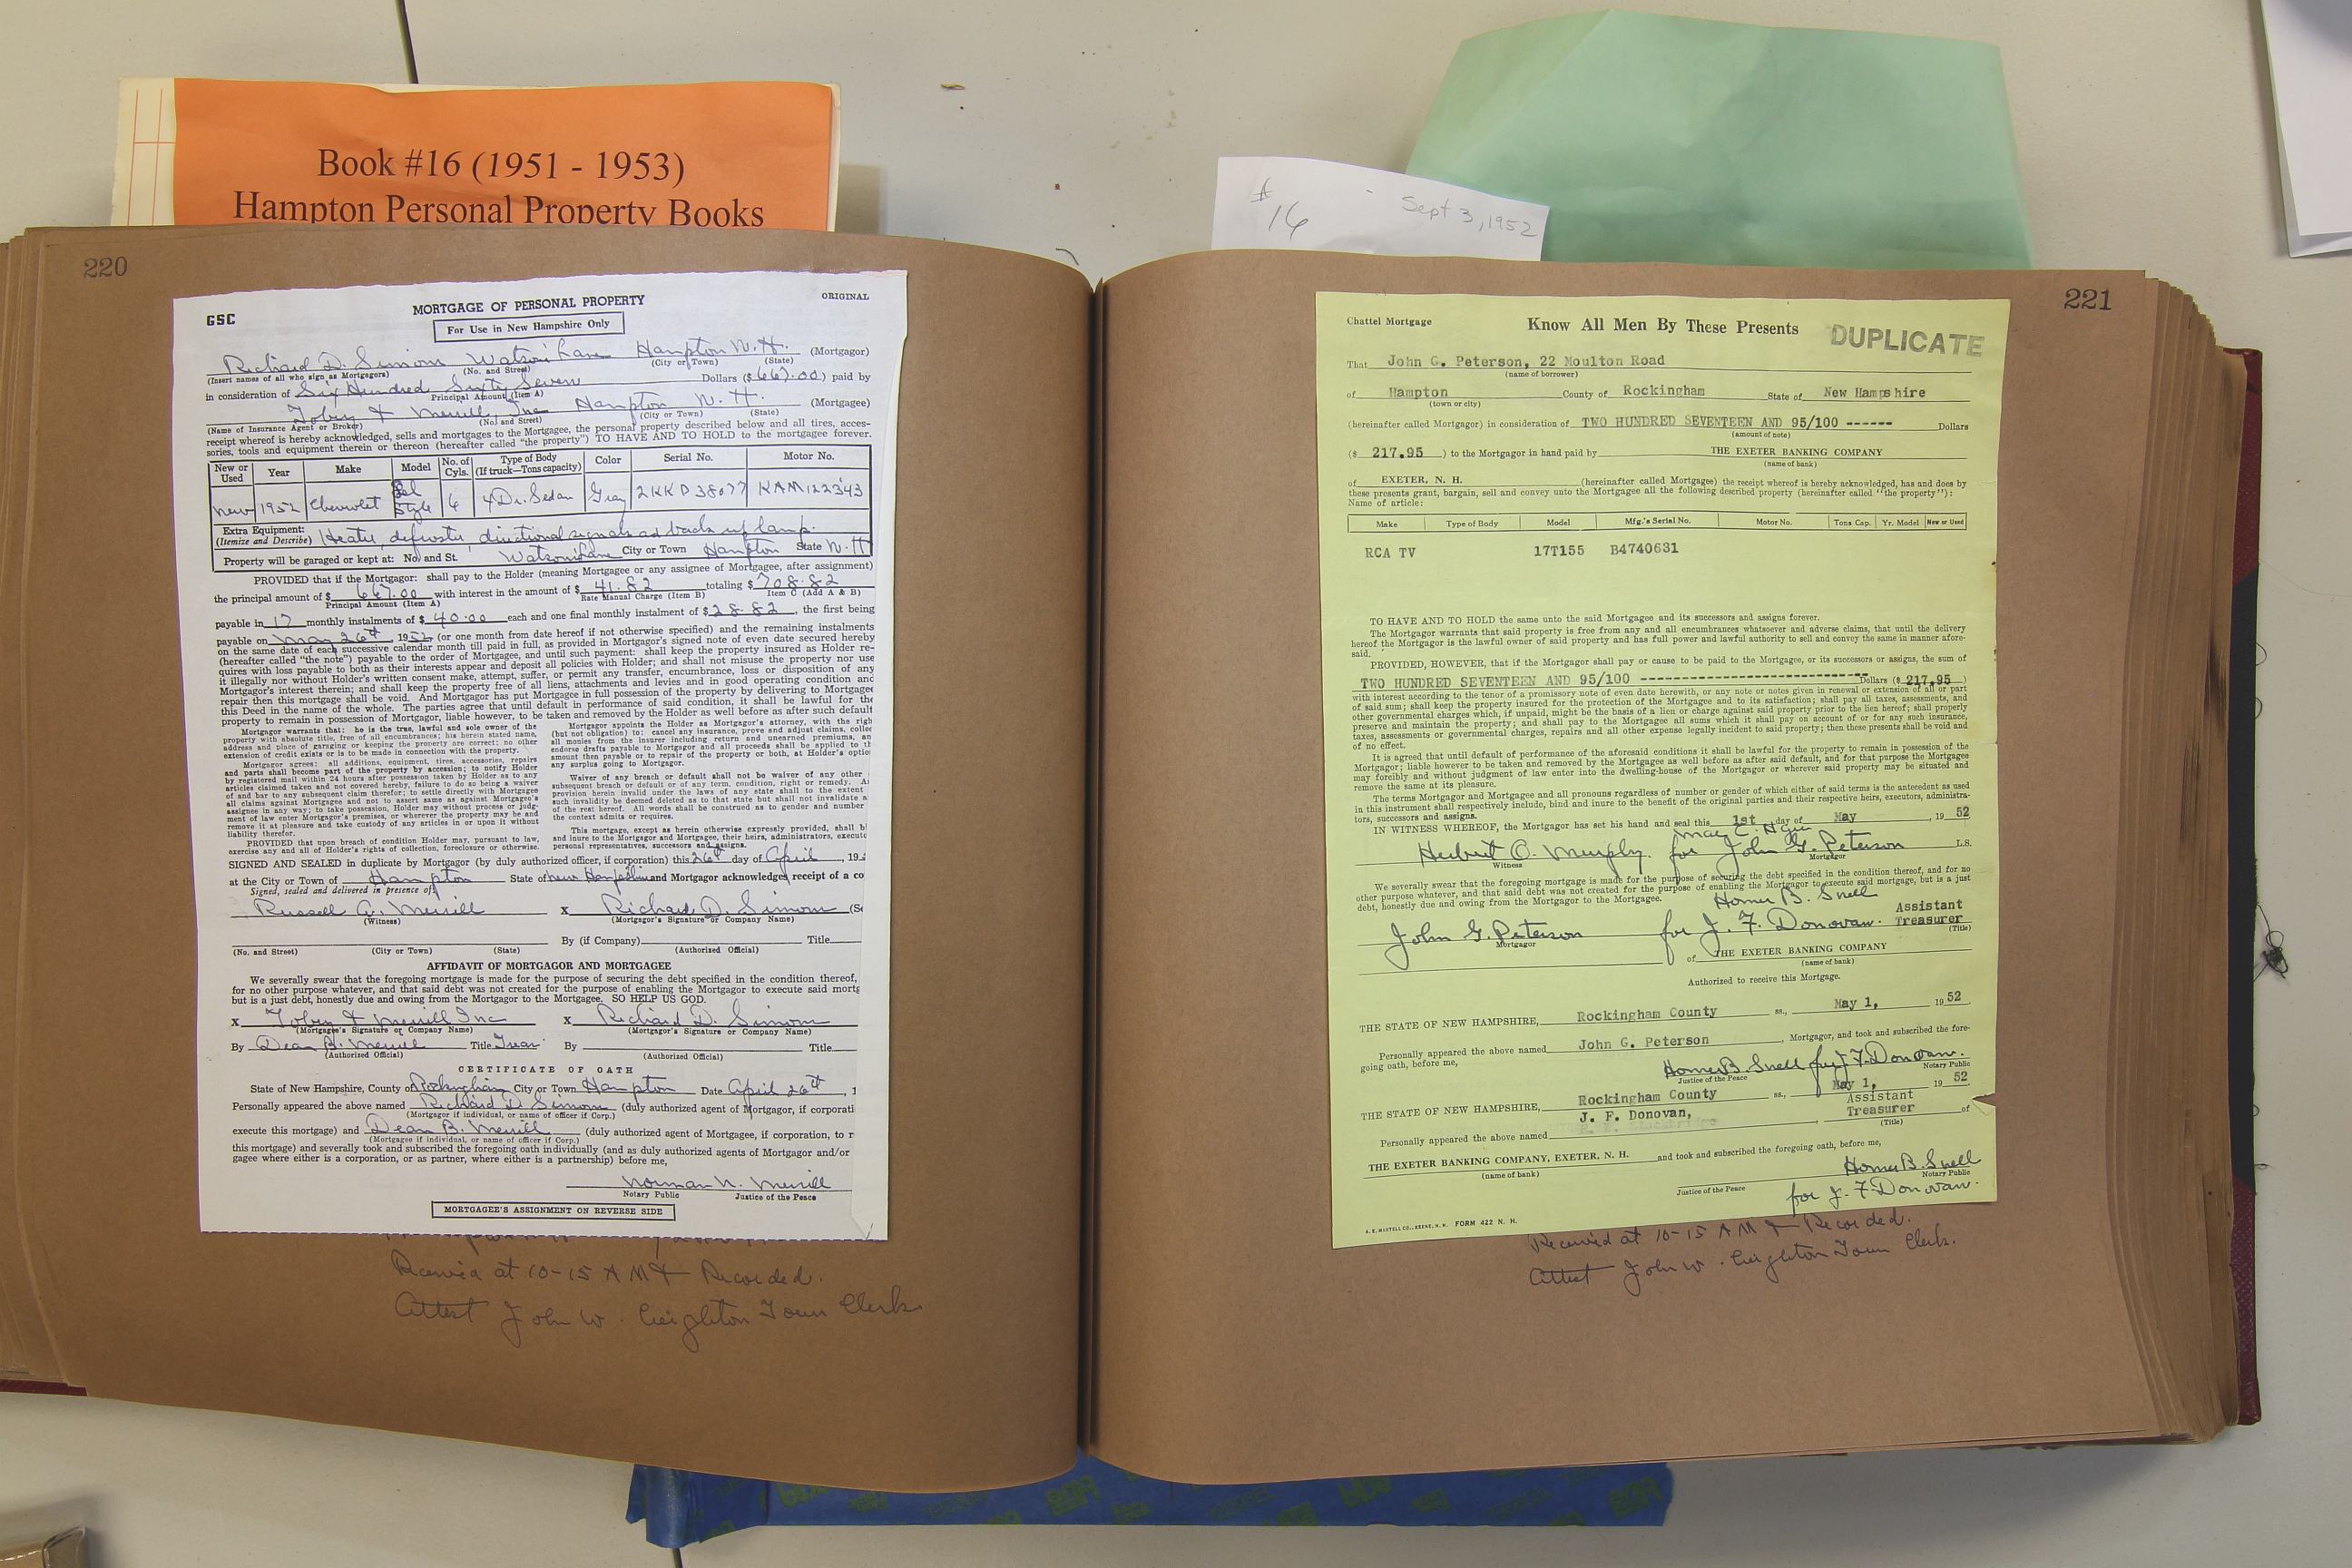 Book #16 (1951 - 1953)
Hampton Personal Property Books
# 16 - Sept 3, 1952
220
GSC
MORTGAGE OF PERSONAL PROPERTY
ORIGINAL
For Use in New Hampshire Only
Richard D. Simon Watson's Lane Hampton N. H. (Mortgagor)
(Insert names of all who sign as Mortgagors) (No. and Street) (City or Town) (State)
in consideration of Six Hundred Sixty Seven Dollars ($667.00) paid by
Principal Amount (Item A)
Tobey & Merrill, Inc Hampton N. H. (Mortgagee)
(Name of Insurance Agent or Broker) (No. and Street) (City or Town) (State)
receipt whereof is hereby acknowledged, sells and mortgages to the Mortgagee, the personal property described below and all tires, acces-
sories, tools and equipment therein or thereon (hereafter called "the property") TO HAVE AND TO HOLD to the mortgagee forever.
New or Used Year Make Model No. of Cyls. Type of Body (If truck—Tons capacity) Color Serial No. Motor No.
New 1952 Chevrolet Bel Style 6 4 Dr. Sedan Gray 2KKD38077 KAM122343
Extra Equipment: (Itemize and Describe) Heater, defroster, directional signals and back up lamp.
Property will be garaged or kept at: No. and St. Watson's Lane City or Town Hampton State N. H
PROVIDED that if the Mortgagor: shall pay to the Holder (meaning Mortgagee or any assignee of Mortgagee, after assignment)
the principal amount of $ 667.00 with interest in the amount of $ 41.82 totaling $ 708.82
Principal Amount (Item A) Rate Manual Charge (Item B) Item C (Add A & B)
payable in 17 monthly instalments of $ 40.00 each and one final monthly instalment of $ 28.82, the first being
payable on May 26th, 1952 (or one month from date hereof if not otherwise specified) and the remaining instalments
on the same date of each successive calendar month till paid in full, as provided in Mortgagor's signed note of even date secured hereby
(hereafter called "the note") payable to the order of Mortgagee, and until such payment: shall keep the property insured as Holder re-
quires with loss payable to both as their interests appear and deposit all policies with Holder; and shall not misuse the property nor use
it illegally nor without Holder's written consent make, attempt, suffer, or permit any transfer, encumbrance, loss or disposition of any
Mortgagor's interest therein; and shall keep the property free of all liens, attachments and levies and in good operating condition and
repair then this mortgage shall be void. And Mortgagor has put Mortgagee in full possession of the property by delivering to Mortgagee
this Deed in the name of the whole. The parties agree that until default in performance of said condition, it shall be lawful for the
property to remain in possession of Mortgagor, liable however, to be taken and removed by the Holder as well before as after such default
Mortgagor warrants that: he is the true, lawful and sole owner of the
property with absolute title, free of all encumbrances; his herein stated name,
address and place of garaging or keeping the property are correct; no other
extension of credit exists or is to be made in connection with the property.
Mortgagor agrees: all additions, equipment, tires, accessories, repairs
and parts shall become part of the property by accession; to notify Holder
by registered mail within 24 hours after possession taken by Holder as to any
articles claimed taken and not covered hereby, failure to do so being a waiver
of and bar to any subsequent claim therefor; to settle directly with Mortgagee
all claims against Mortgagee and not to assert same as against Mortgagee's
assignee in any way; to take possession, Holder may without process or judg-
ment of law enter Mortgagor's premises, or wherever the property may be and
remove it at pleasure and take custody of any articles in or upon it without
liability therefor.
PROVIDED that upon breach of condition Holder may, pursuant to law,
exercise any and all of Holder's rights of collection, foreclosure or otherwise.
Mortgagor appoints the Holder as Mortgagor's attorney, with the righ
(but not obligation) to: cancel any insurance, prove and adjust claims, collec
all monies from the insurer including return and unearned premiums, an
endorse drafts payable to Mortgagor and all proceeds shall be applied to th
amount then payable or to repair of the property or both, at Holder's optio
any surplus going to Mortgagor.
Waiver of any breach or default shall not be waiver of any other
subsequent breach or default or of any term, condition, right or remedy. A
provision herein invalid under the laws of any state shall to the extent
such invalidity be deemed deleted as to that state but shall not invalidate a
the rest hereof. All words shall be construed as to gender and number
the context admits or requires.
This mortgage, except as herein otherwise expressly provided, shall bi
and inure to the Mortgagor and Mortgagee, their heirs, administrators, executo
personal representatives, successors and assigns.
SIGNED AND SEALED in duplicate by Mortgagor (by duly authorized officer, if corporation) this 26th day of April, 195
at the City or Town of Hampton State of New Hampshire and Mortgagor acknowledges receipt of a co
Signed, sealed and delivered in presence of:
Russell G. Merrill X Richard D. Simon (Se
(Witness) (Mortgagor's Signature or Company Name)
By (if Company) Title
(No. and Street) (City or Town) (State) (Authorized Official)
AFFIDAVIT OF MORTGAGOR AND MORTGAGEE
We severally swear that the foregoing mortgage is made for the purpose of securing the debt specified in the condition thereof,
for no other purpose whatever, and that said debt was not created for the purpose of enabling the Mortgagor to execute said mortg
but is a just debt, honestly due and owing from the Mortgagor to the Mortgagee. SO HELP US GOD.
X Tobey & Merrill Inc X Richard D. Simon
(Mortgagee's Signature or Company Name) (Mortgagor's Signature or Company Name)
By Dean B. Merrill Title Treas. By Title
(Authorized Official) (Authorized Official)
CERTIFICATE OF OATH
State of New Hampshire, County of Rockingham City or Town Hampton Date April 26th, 1
Personally appeared the above named Richard D. Simon (duly authorized agent of Mortgagor, if corporati
(Mortgagor if individual, or name of officer if Corp.)
execute this mortgage) and Dean B. Merrill (duly authorized agent of Mortgagee, if corporation, to r
(Mortgagee if individual, or name of officer if Corp.)
this mortgage) and severally took and subscribed the foregoing oath individually (and as duly authorized agents of Mortgagor and/or
gagee where either is a corporation, or as partner, where either is a partnership) before me,
Norman N. Merrill
Notary Public Justice of the Peace
MORTGAGEE'S ASSIGNMENT ON REVERSE SIDE
Received at 10-15 A M & Recorded.
Attest John W. Creighton Town Clerk.
221
Chattel Mortgage
Know All Men By These Presents
DUPLICATE
That John G. Peterson, 22 Moulton Road
(name of borrower)
of Hampton County of Rockingham State of New Hampshire
(town or city)
(hereinafter called Mortgagor) in consideration of TWO HUNDRED SEVENTEEN AND 95/100 ------ Dollars
(amount of note)
($ 217.95 ) to the Mortgagor in hand paid by THE EXETER BANKING COMPANY
(name of bank)
of EXETER, N. H. (hereinafter called Mortgagee) the receipt whereof is hereby acknowledged, has and does by
these presents grant, bargain, sell and convey unto the Mortgagee all the following described property (hereinafter called "the property"):
Name of article:
Make Type of Body Model Mfg.'s Serial No. Motor No. Tons Cap. Yr. Model New or Used
RCA TV 17T155 B4740631
TO HAVE AND TO HOLD the same unto the said Mortgagee and its successors and assigns forever.
The Mortgagor warrants that said property is free from any and all encumbrances whatsoever and adverse claims, that until the delivery
hereof the Mortgagor is the lawful owner of said property and has full power and lawful authority to sell and convey the same in manner afore-
said.
PROVIDED, HOWEVER, that if the Mortgagor shall pay or cause to be paid to the Mortgagee, or its successors or assigns, the sum of
TWO HUNDRED SEVENTEEN AND 95/100 -------------------------- Dollars ($ 217.95 )
with interest according to the tenor of a promissory note of even date herewith, or any note or notes given in renewal or extension of all or part
of said sum; shall keep the property insured for the protection of the Mortgagee and to its satisfaction; shall pay all taxes, assessments, and
other governmental charges which, if unpaid, might be the basis of a lien or charge against said property prior to the lien hereof; shall properly
preserve and maintain the property; and shall pay to the Mortgagee all sums which it shall pay on account of or for any such insurance,
taxes, assessments or governmental charges, repairs and all other expense legally incident to said property; then these presents shall be void and
of no effect.
It is agreed that until default of performance of the aforesaid conditions it shall be lawful for the property to remain in possession of the
Mortgagor; liable however to be taken and removed by the Mortgagee as well before as after said default, and for that purpose the Mortgagee
may forcibly and without judgment of law enter into the dwelling-house of the Mortgagor or wherever said property may be situated and
remove the same at its pleasure.
The terms Mortgagor and Mortgagee and all pronouns regardless of number or gender of which either of said terms is the antecedent as used
in this instrument shall respectively include, bind and inure to the benefit of the original parties and their respective heirs, executors, administra-
tors, successors and assigns.
IN WITNESS WHEREOF, the Mortgagor has set his hand and seal this 1st day of May, 19 52
Herbert O. Murphy for John G. Peterson L.S.
Witness Mortgagor
We severally swear that the foregoing mortgage is made for the purpose of securing the debt specified in the condition thereof, and for no
other purpose whatever, and that said debt was not created for the purpose of enabling the Mortgagor to execute said mortgage, but is a just
debt, honestly due and owing from the Mortgagor to the Mortgagee.
Homer B. Snell
John G. Peterson for J. F. Donovan. Assistant Treasurer
Mortgagor (Title)
of THE EXETER BANKING COMPANY
(name of bank)
Authorized to receive this Mortgage.
THE STATE OF NEW HAMPSHIRE, Rockingham County ss., May 1, 19 52
Personally appeared the above named John G. Peterson, Mortgagor, and took and subscribed the fore-
going oath, before me,
Homer B. Snell for J. F. Donovan.
Justice of the Peace Notary Public
THE STATE OF NEW HAMPSHIRE, Rockingham County ss., May 1, 19 52
Personally appeared the above named J. F. Donovan, Assistant Treasurer of
(Title)
THE EXETER BANKING COMPANY, EXETER, N. H. and took and subscribed the foregoing oath, before me,
(name of bank)
Homer B. Snell
Justice of the Peace Notary Public
for J. F. Donovan.
A. E. MARTELL CO., KEENE, N. H. FORM 422 N. H.
Received at 10-15 A M & Recorded.
Attest John W. Creighton Town Clerk.